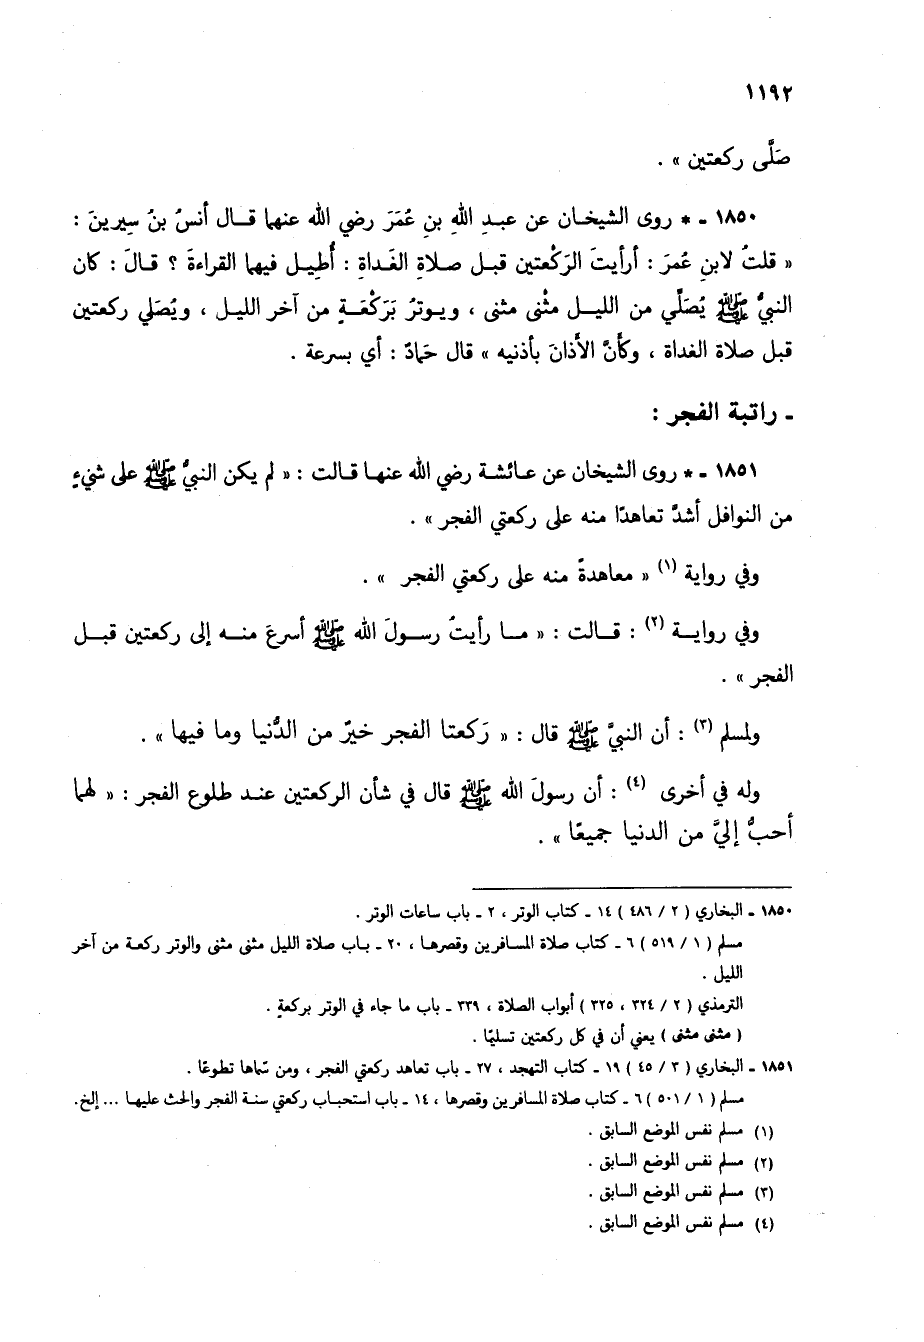 ١١٩٢
صَلَّى ركعتين » .
١٨٥٠ ـ * روى الشيخان عن عبدِ اللهِ بنِ عُمَرَ رضي الله عنهما قال أنسُ بنُ سِيرينَ :
« قلتُ لابنِ عُمرَ : أرأيتَ الرَكْعتين قبل صلاةِ الغَداةِ : أُطِيل فيهما القراءةَ ؟ قالَ : كان
النبيُّ ﷺ يُصَلِّي من الليل مثْنى مثنى ، ويوترُ بَرَكْعَةٍ من آخر الليل ، ويُصَلي ركعتين
قبل صلاة الغداة ، وكأَنَّ الأَذانَ بأذنيه » قال حَمادٌ : أي بسرعة .
ـ راتبة الفجر :
١٨٥١ ـ * روى الشيخان عن عائشة رضي الله عنها قالت : « لم يكن النبيُّ ﷺ على شيءٍ
من النوافل أشدَّ تعاهدًا منه على ركعتي الفجر » .
وفي رواية (١) « معاهدةً منه على ركعتي الفجر » .
وفي رواية (٢) : قالت : « ما رأيتُ رسولَ الله ﷺ أسرعَ منه إلى ركعتين قبل
الفجر » .
ولمسلم (٣) : أن النبيَّ ﷺ قال : « رَكعتا الفجر خيرٌ من الدُّنيا وما فيها » .
وله في أخرى (٤) : أن رسولَ الله ﷺ قال في شأن الركعتين عند طلوع الفجر : « لهما
أحبُّ إليَّ من الدنيا جميعًا » .
١٨٥٠ ـ البخاري ( ٢ / ٤٨٦ ) ١٤ ـ كتاب الوتر ، ٢ ـ باب ساعات الوتر .
مسلم ( ١ / ٥١٩ ) ٦ ـ كتاب صلاة المسافرين وقصرها ، ٢٠ ـ باب صلاة الليل مثنى مثنى والوتر ركعة من آخر
الليل .
الترمذي ( ٢ / ٣٢٤ ، ٣٢٥ ) أبواب الصلاة ، ٣٣٩ ـ باب ما جاء في الوتر بركعةٍ .
( مثنى مثنى ) يعني أن في كل ركعتين تسليمًا .
١٨٥١ ـ البخاري ( ٣ / ٤٥ ) ١٩ ـ كتاب التهجد ، ٢٧ ـ باب تعاهد ركعتي الفجر ، ومن سمّاها تطوعًا .
مسلم ( ١ / ٥٠١ ) ٦ ـ كتاب صلاة المسافرين وقصرها ، ١٤ ـ باب استحباب ركعتي سنة الفجر والحث عليهما ... إلخ.
(١) مسلم نفس الموضع السابق .
(٢) مسلم نفس الموضع السابق .
(٣) مسلم نفس الموضع السابق .
(٤) مسلم نفس الموضع السابق .